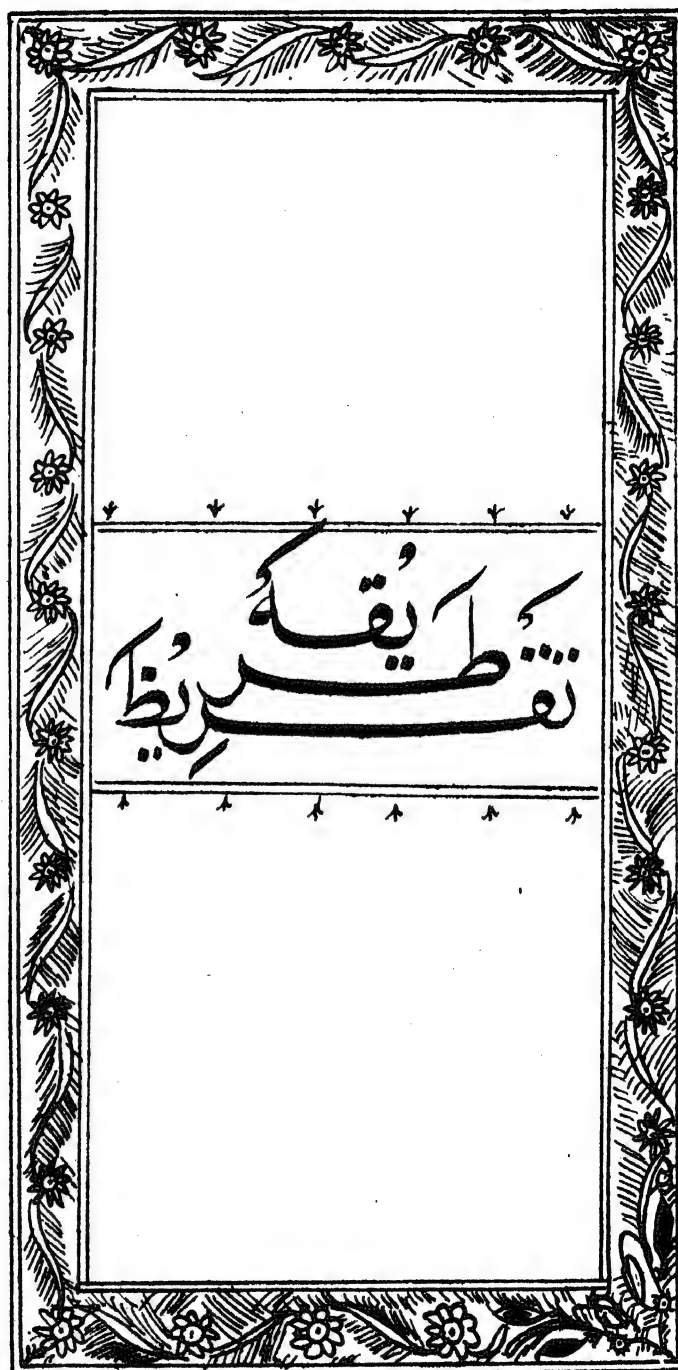 طريقه
تقريظ